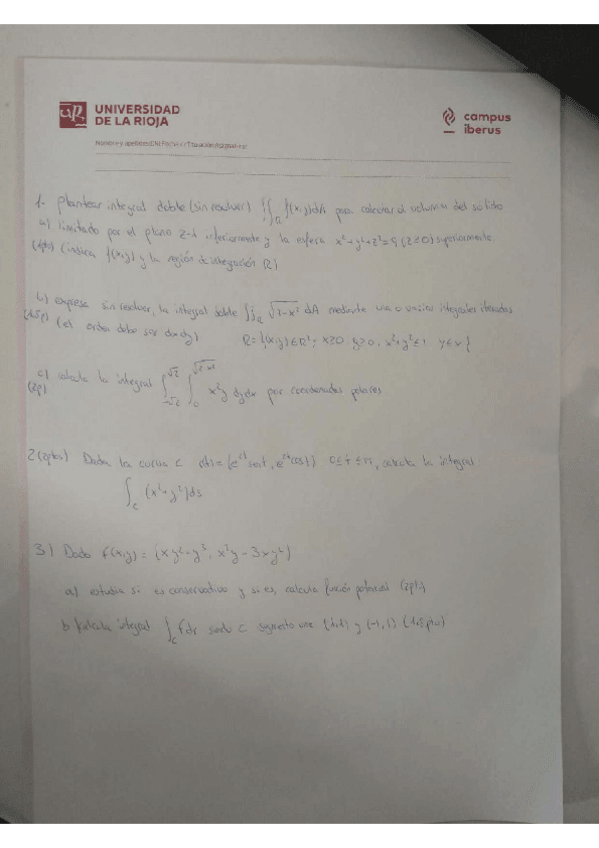 UNIVERSIDAD
DE LA RIOJA
campus
iberus
1- Plantear integral doble (sin resolver) ∫∫_R f(x,y)dA para calcular el volumen del sólido
a) limitado por el plano z=1 inferiormente y la esfera x²+y²+z²= (z≥0) superiormente.
(indica f(x,y) y la región de integración R)
b) expresa sin resolver, la integral doble ∫∫_R dA mediante una o varias integrales iteradas
(el orden debe ser dxdy) R={(x,y)∈R²; x≥0, y≥0, x²+y²≤1 y≤x}
c) calcula la integral x²y dydx por coordenadas polares
(2p)
2(2ptos) Dada la curva C 0≤t≤π, calcula la integral
∫_C (x²+y²)ds
3) Dado f(x,y) = (xy²-y³, x²y-3xy²)
a) estudia si es conservativo y si es, calcula función potencial
b) calcula integral ∫_C Fdr siendo C segmento une y (-1,1)